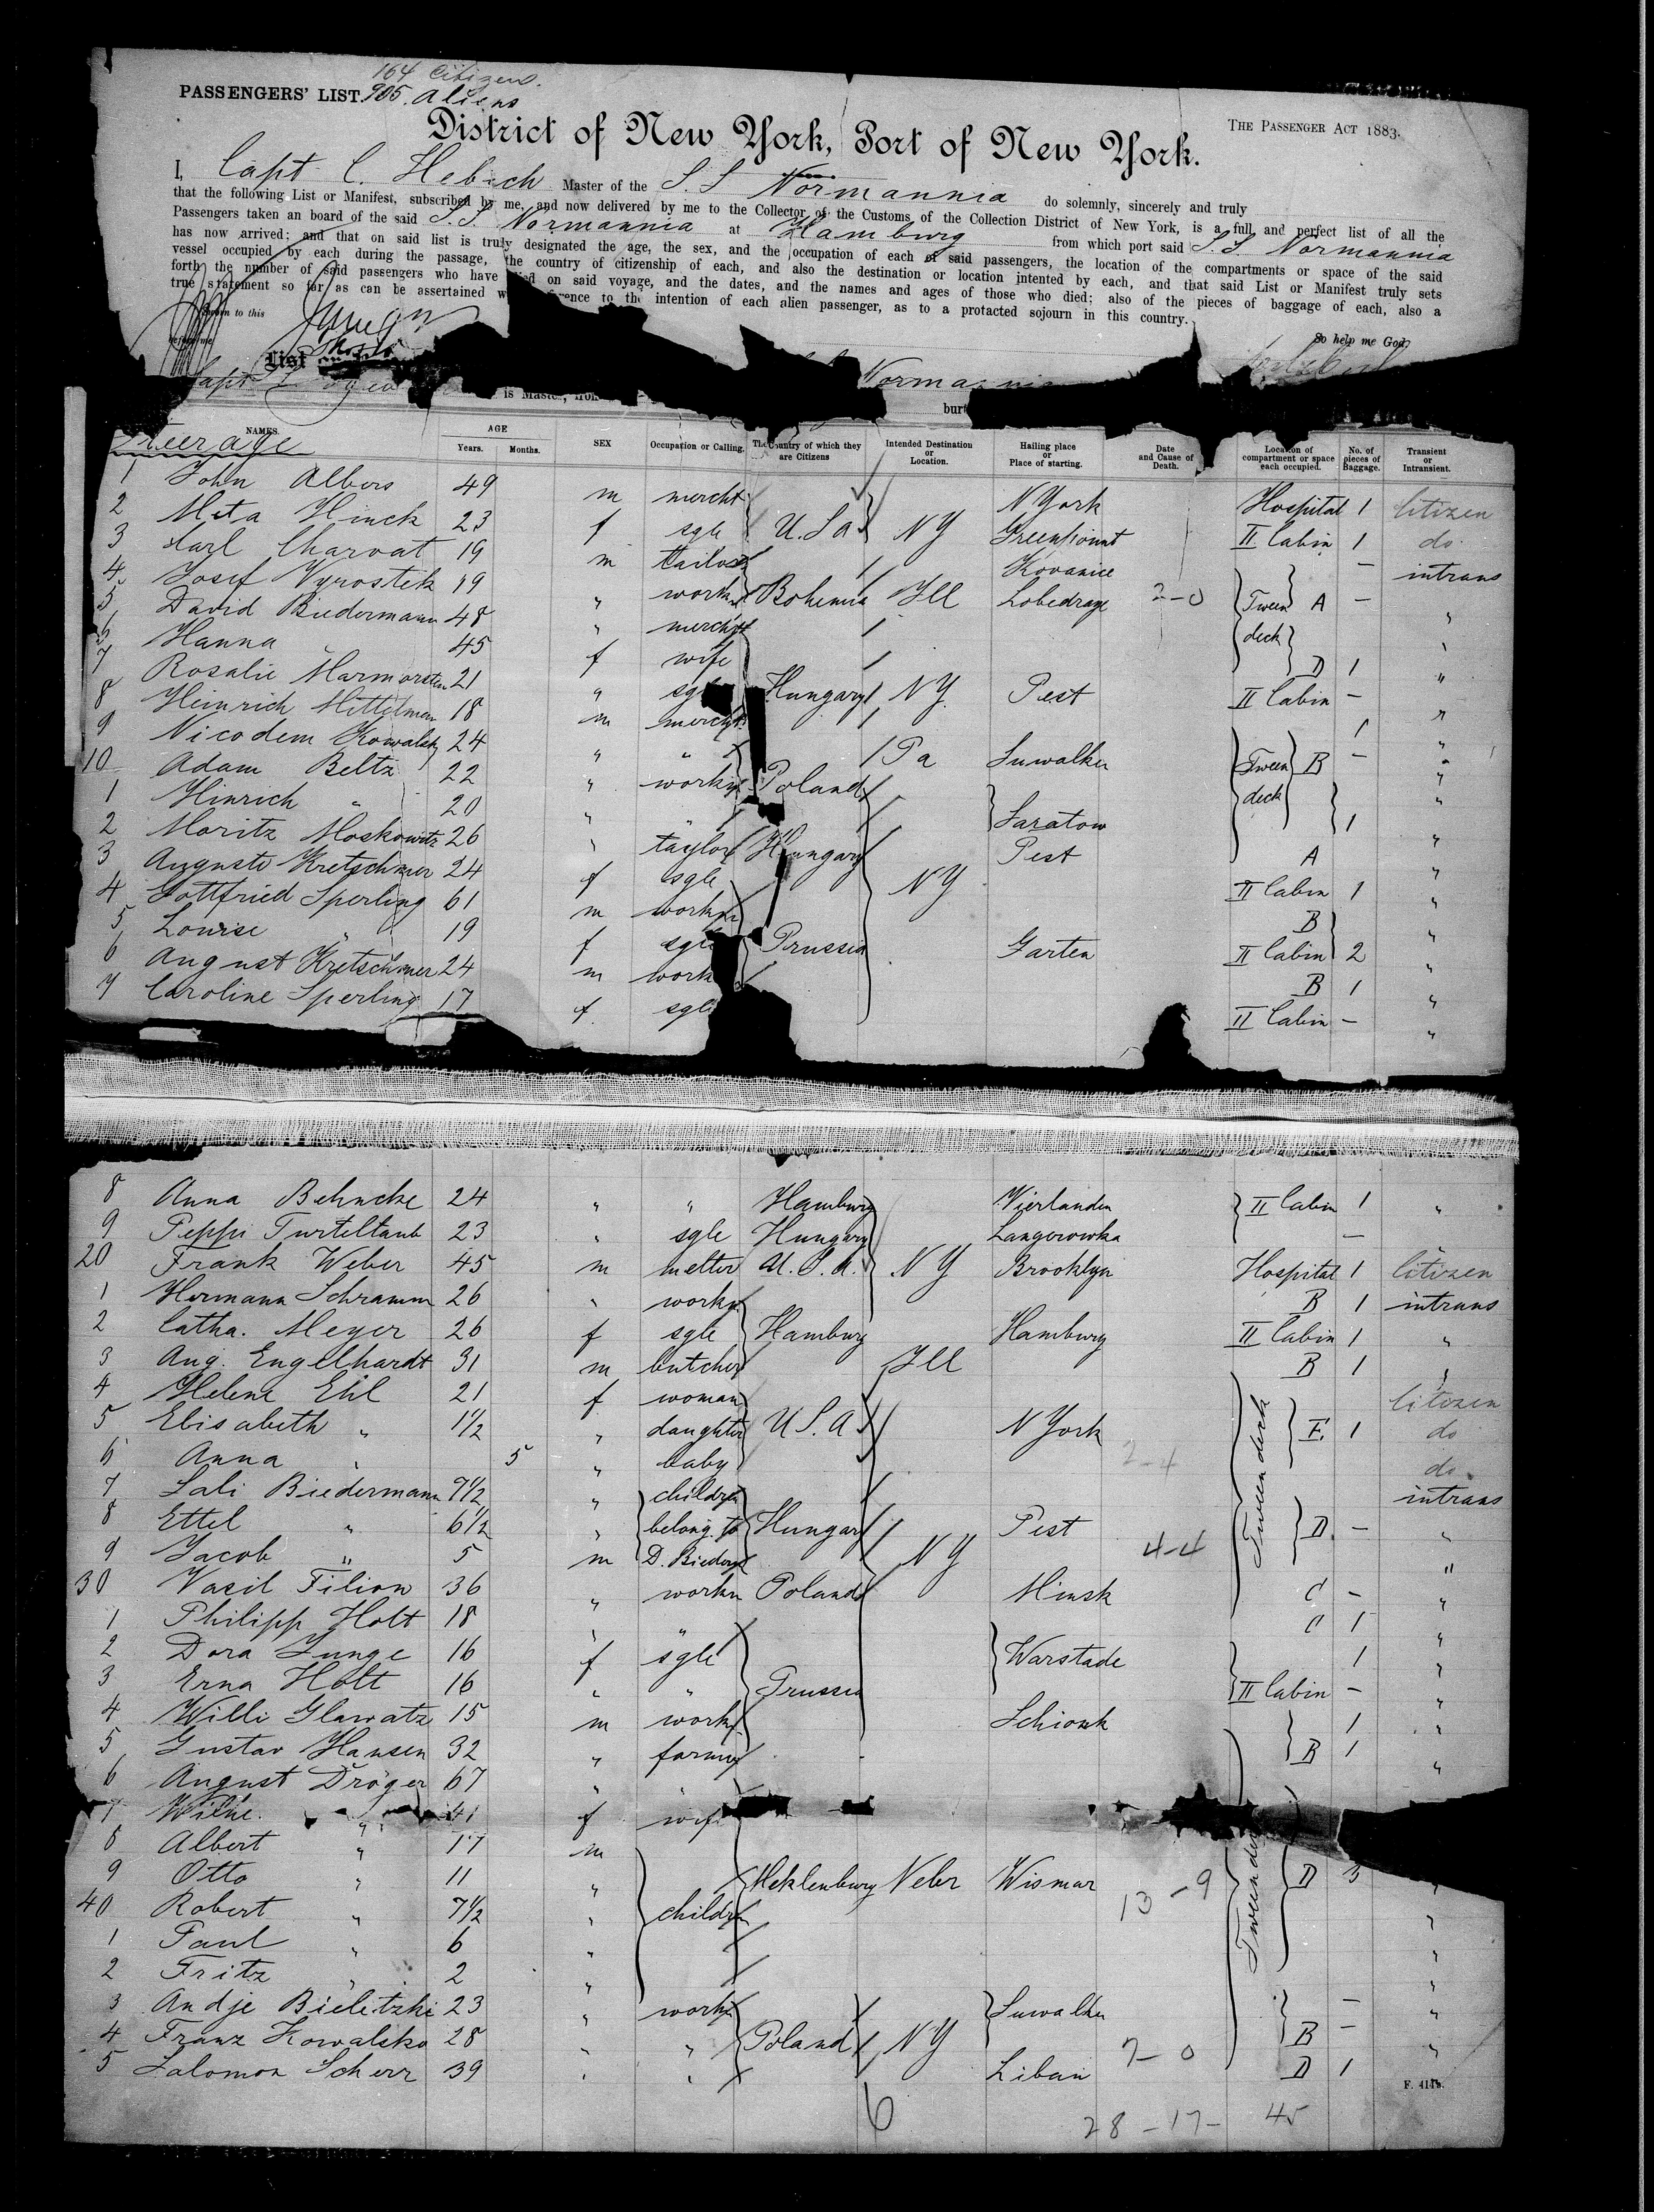 164 Citizens.
PASSENGERS' LIST. 905. Aliens
District of New York, Port of New York.
THE PASSENGER ACT 1883.
I, Capt C. Hebich Master of the S.S Normannia do solemnly, sincerely and truly
that the following List or Manifest, subscribed by me, and now delivered by me to the Collector of the Customs of the Collection District of New York, is a full and perfect list of all the
Passengers taken an board of the said S.S. Normannia at Hamburg from which port said S.S. Normannia
has now arrived; and that on said list is truly designated the age, the sex, and the occupation of each of said passengers, the location of the compartments or space of the said
vessel occupied by each during the passage, the country of citizenship of each, and also the destination or location intented by each, and that said List or Manifest truly sets
forth the number of said passengers who have died on said voyage, and the dates, and the names and ages of those who died; also of the pieces of baggage of each, also a
true statement so far as can be assertained reference to the intention of each alien passenger, as to a protacted sojourn in this country.
to this
So help me God,
List
Normannia
Capt is Master, from
NAMES. AGE Years. Months. SEX Occupation or Calling. The Country of which they are Citizens Intended Destination or Location. Hailing place or Place of starting. Date and Cause of Death. Location of compartment or space each occupied. No. of pieces of Baggage. Transient or Intransient.
Steerage
1 John Albers 49 m mercht N York Hospital 1 Citizen
2 Meta Hinck 23 f sgle U.S.a NY Greenpoint II Cabin 1 do
3 Karl Charvat 19 m tailor Kovanice — intrans
4 Josef Vyrostek 19 " workm Bohemia Ill Lobedrage 2-0 Tween deck A — "
5 David Biedermann 48 " mercht "
6 Hanna " 45 f wife D 1 "
7 Rosalie Marmorstein 21 " sgle Hungary NY Pest II Cabin — "
8 Heinrich Mittelman 18 m mercht 1 "
9 Nicodem Kowalsky 24 " " Pa Suwalken Tween deck B — "
10 Adam Beltz 22 " workm Poland "
1 Hinrich " 20 " " Saratow 1 "
2 Moritz Moskowitz 26 " taylor Hungary Pest A "
3 Auguste Kretschmer 24 f sgle NY II Cabin 1 "
4 Gottfried Sperling 61 m workm B "
5 Louise " 19 f sgle Prussia Garten II Cabin 2 "
6 August Kretschmer 24 m work B 1 "
7 Caroline Sperling 17 f sgle II Cabin — "
8 Anna Behncke 24 " " Hamburg Vierlanden II Cabin 1 "
9 Peppi Turteltaub 23 " sgle Hungary Langerowka — "
20 Frank Weber 45 m melter U.S.A. NY Brooklyn Hospital 1 Citizen
1 Hermann Schramm 26 " workm B 1 intrans
2 Catha. Meyer 26 f sgle Hamburg Hamburg II Cabin 1 "
3 Aug. Engelhardt 31 m butcher Ill B 1 "
4 Helene Ehl 21 f woman Citizen
5 Elisabeth " 1½ " daughter U.S.A N York Tweendeck E. 1 do
6 Anna " 5 " baby 2-4 do
7 Sali Biedermann 9½ " children intrans
8 Ettel " 6½ " belong. to Hungary Pest D. — "
9 Jacob " 5 m D. Biederm NY 4-4 "
30 Vasil Filion 36 " workm Poland Minsk C — "
1 Philipp Holt 18 " " C 1 "
2 Dora Junge 16 f sgle Warstade 1 "
3 Erna Holt 16 " " Prussia II Cabin — "
4 Willi Glawatz 15 m workm Schionk 1 "
5 Gustav Hansen 32 " farmer B 1 "
6 August Dröger 67 " "
7 Wilhe. " 41 f wife
8 Albert " 17 m
9 Otto " 11 " Meklenburg Nebr Wismar 13-9 Tweendeck D 3 "
40 Robert " 7½ " children "
1 Paul " 6 " "
2 Fritz " 2 " "
3 Andje Bielitzki 23 " workm Suwalken — "
4 Franz Kowalsko 28 " " Poland NY B — "
5 Salomon Scherr 39 " " Libau 7-0 D 1
F. 411b.
6 28-17- 45